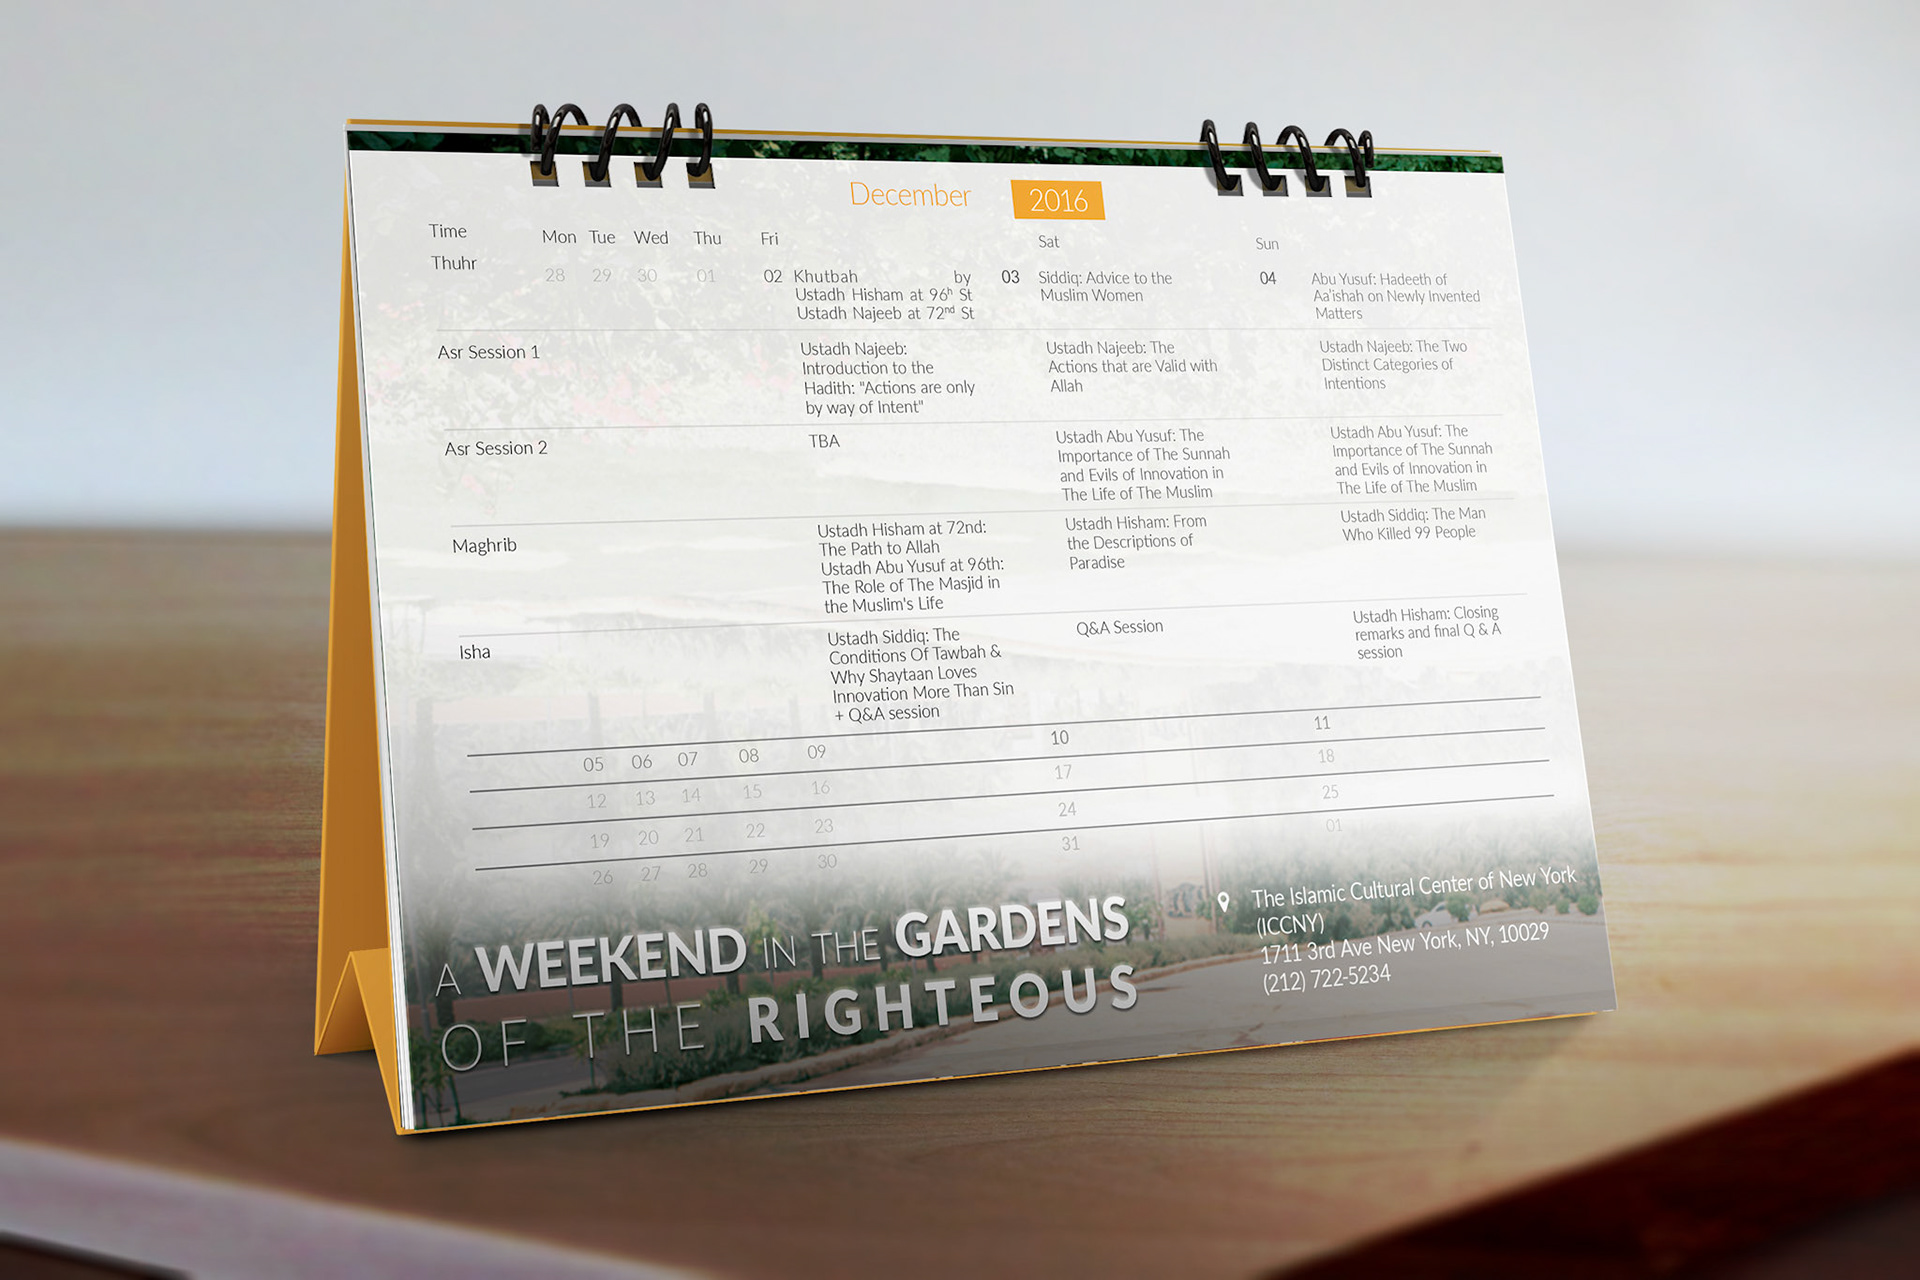 December 2016
Time Mon Tue Wed Thu Fri Sat Sun
Thuhr 28 29 30 01 02 Khutbah by 03 Siddiq: Advice to the 04 Abu Yusuf: Hadeeth of
Ustadh Hisham at 96h St Muslim Women Aa'ishah on Newly Invented
Ustadh Najeeb at 72nd St Matters
Asr Session 1 Ustadh Najeeb: Ustadh Najeeb: The Ustadh Najeeb: The Two
Introduction to the Actions that are Valid with Distinct Categories of
Hadith: "Actions are only Allah Intentions
by way of Intent"
Asr Session 2 TBA Ustadh Abu Yusuf: The Ustadh Abu Yusuf: The
Importance of The Sunnah Importance of The Sunnah
and Evils of Innovation in and Evils of Innovation in
The Life of The Muslim The Life of The Muslim
Maghrib Ustadh Hisham at 72nd: Ustadh Hisham: From Ustadh Siddiq: The Man
The Path to Allah the Descriptions of Who Killed 99 People
Ustadh Abu Yusuf at 96th: Paradise
The Role of The Masjid in
the Muslim's Life
Isha Ustadh Siddiq: The Q&A Session Ustadh Hisham: Closing
Conditions Of Tawbah & remarks and final Q & A
Why Shaytaan Loves session
Innovation More Than Sin
+ Q&A session
05 06 07 08 09 10 11
12 13 14 15 16 17 18
19 20 21 22 23 24 25
26 27 28 29 30 31 01
A WEEKEND IN THE GARDENS
OF THE RIGHTEOUS
The Islamic Cultural Center of New York
(ICCNY)
1711 3rd Ave New York, NY, 10029
(212) 722-5234